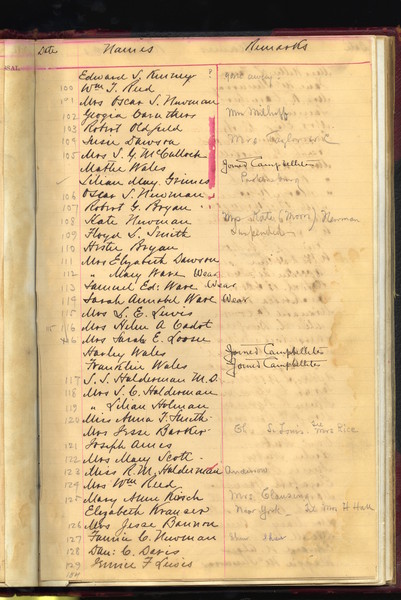 Date Names Remarks
Edward S. Kinney gone away
100 Wm T. Reed
101 Mrs Oscar S. Newman
102 Georgia Caruthers Wm Milhoff
103 Robert Oldfield
104 Susie Dawson Mrs.
105 Mrs S. G. McCulloch Joined Campbellites
Mattie Wales
Lilian May Grimes
106 Oscar S. Newman
107 Robert G. Bryan
108 Kate Newman Mrs Kate (Moore) Newman
109 Floyd L. Smith Suspended
110 Hester Bryan
111 Mrs Elizabeth Dawson
112 " Mary Ware Wear
113 Samuel Ed: Ware Wear
114 Sarah Annabel Ware Wear
115 Mrs L. E. Lewis
116 Mrs Helen A. Cadot
Mrs Sarah E. Loose
Harley Wales Joined Campbellites
Franklin Wales Joined Campbellites
117 S. S. Halderman M.D.
118 Mrs S. C. Halderman
119 " Lilian Holman
120 Miss Anna T. Smith
Mrs Jesse Barker Ch. St Louis Mrs Rice
121 Joseph Ames
122 Mrs Mary Scott
123 Miss R. M. Halderman
124 Mrs Wm Reed
125 Mary Anne Kirsch Mrs.
Elizabeth New York Wm H Hall
126 Mrs Jesse Bannon
127 Fannie C. Newman
128 Dan: C. Davis
129 Eunice F Lewis